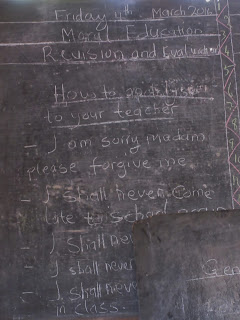 Friday 4th March 2016
Moral Education
Revision and Evaluation
How to
to your teacher
- I am sorry madam
please forgive me
- I shall never come
late to school again
- I shall nev
- I shall never
- I shall never
in class.
Gen